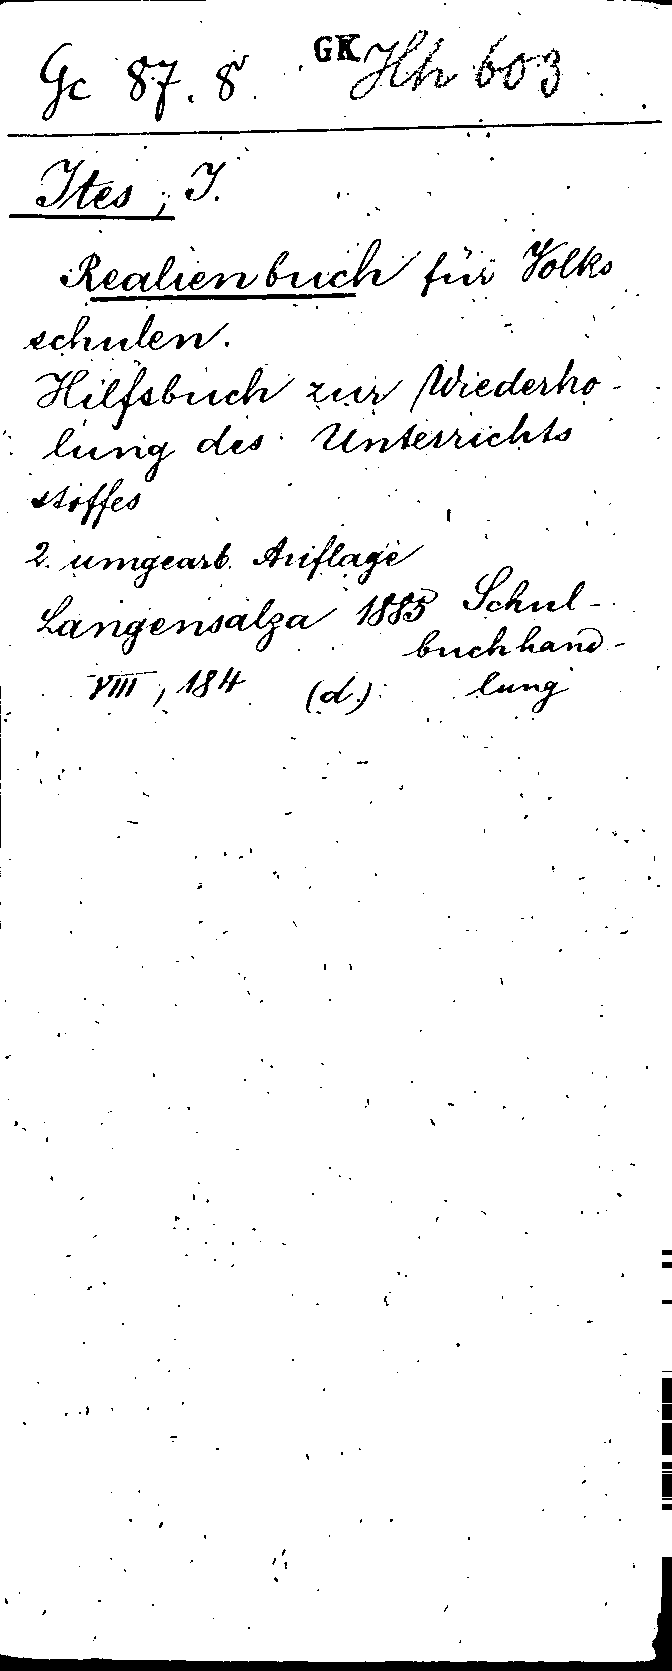 Gc 87. 8. GK Hh 603
Ites, J.
Realienbuch für Volks
schulen.
Hilfsbuch zur Wiederho-
lung des Unterrichts
stoffes
2. umgearb. Auflage
Langensalza 1885 Schul-
buchhand-
VIII, 184 (d.) lung